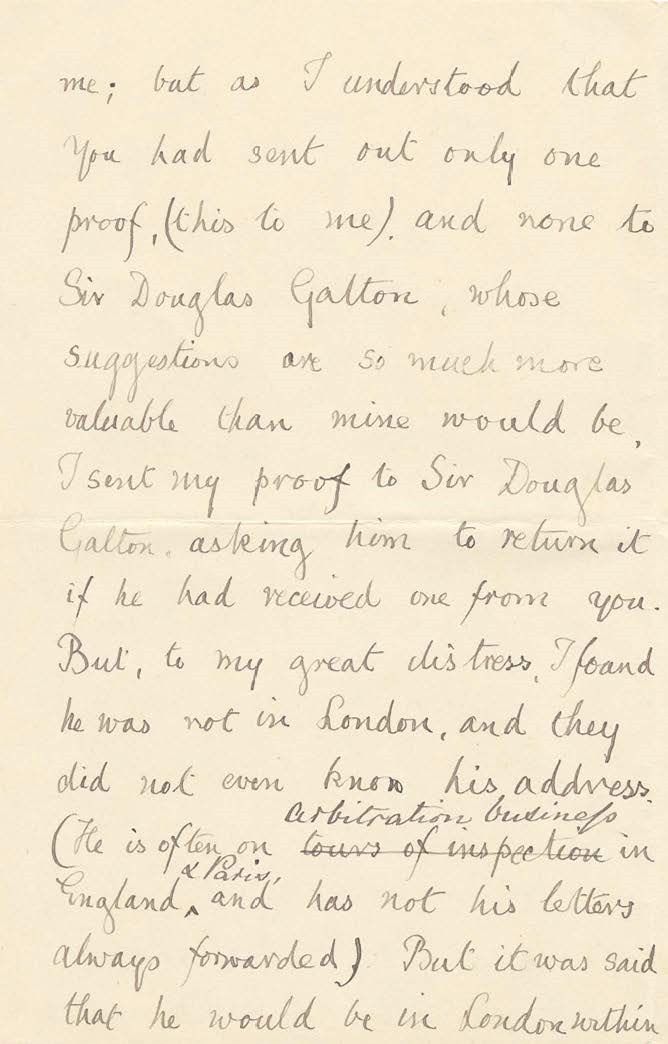 me; but as I understood that
you had sent out only one
proof, (this to me). and none to
Sir Douglas Galton, whose
suggestions are so much more
valuable than mine would be,
I sent my proof to Sir Douglas
Galton. asking him to return it
if he had received one from you.
But, to my great distress, I found
he was not in London, and they
did not even know his address.
arbitration business
(He is often on tours of inspection in
& Paris,
England, and has not his letters
always forwarded) But it was said
that he would be in London within